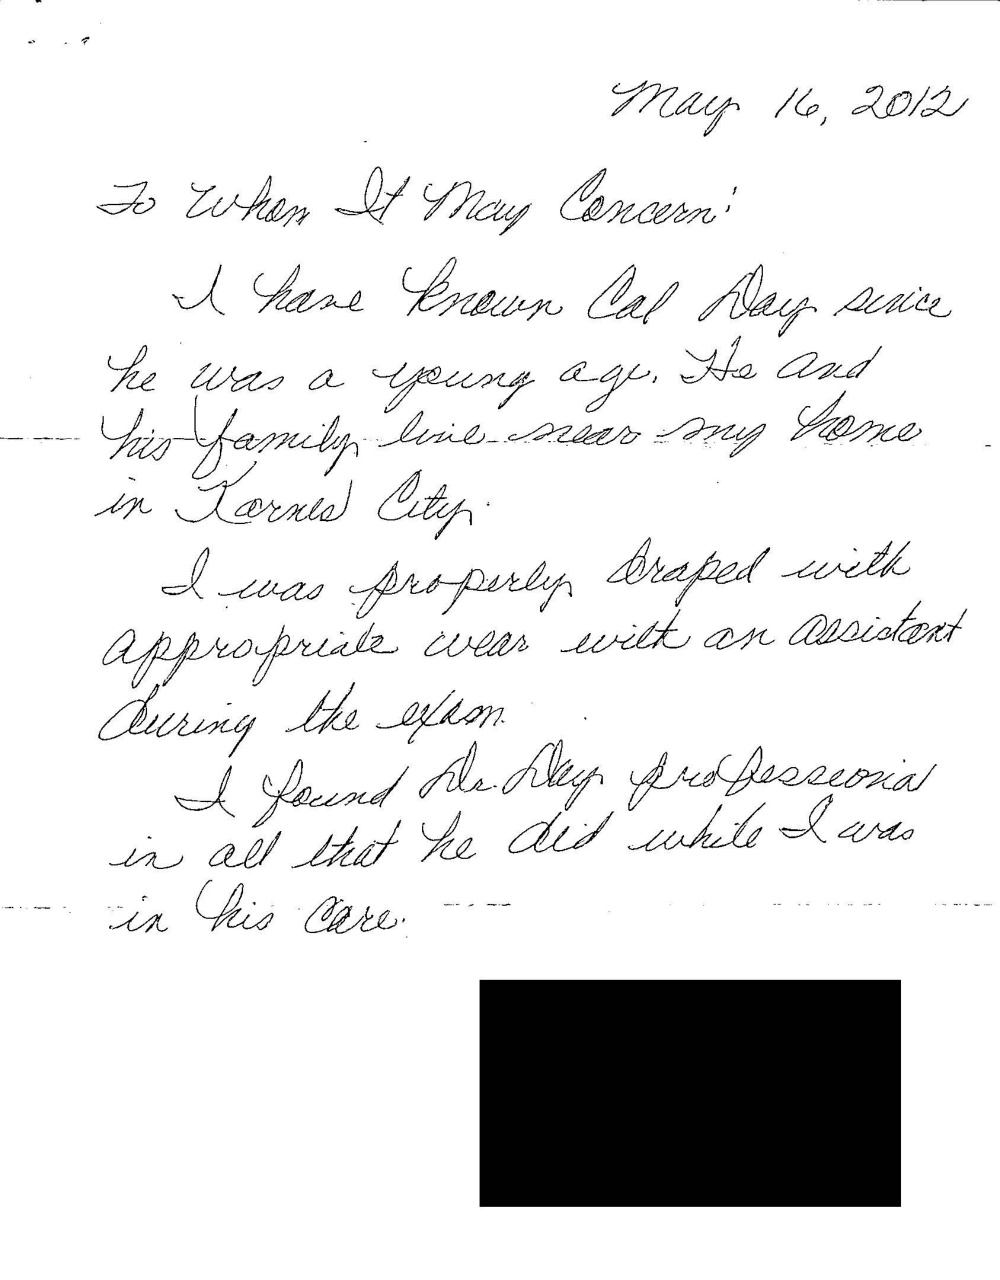 May 16, 2012
To Whom It May Concern:
I have known Cal Day since
he was a young age. He and
his family live near my home
in Karnes City.
I was properly draped with
appropriate wear with an assistant
during the exam.
I found Dr. Day professional
in all that he did while I was
in his care.